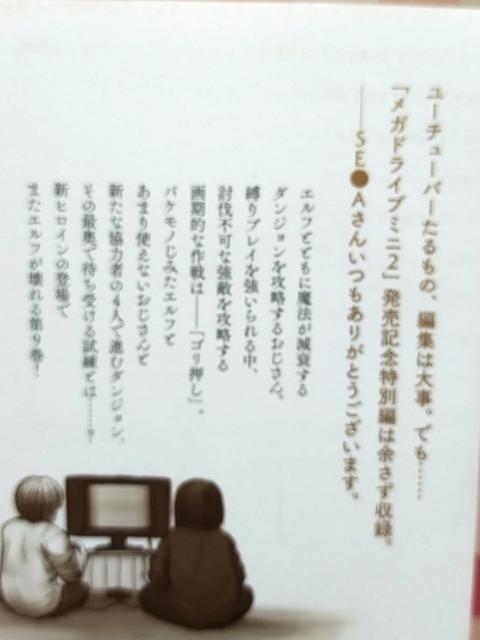 ユーチューバーたるもの、編集は大事。でも……
「メガドライブミニ2」発売記念特別編は余さず収録。
――SE●Aさんいつもありがとうございます。
エルフとともに魔法が減衰する
ダンジョンを攻略するおじさん。
縛りプレイを強いられる中、
討伐不可な強敵を攻略する
画期的な作戦は――「ゴリ押し」。
バケモノじみたエルフと
あまり使えないおじさんと
新たな協力者の4人で進むダンジョン、
その最奥で待ち受ける試練とは……?
新ヒロインの登場で
またエルフが壊れる第9巻!